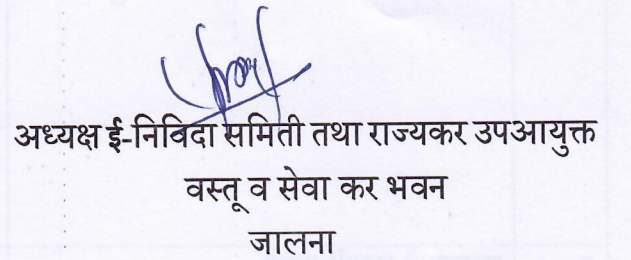 अध्यक्ष ई-निविदा समिती तथा राज्यकर उपआयुक्त
वस्तू व सेवा कर भवन
जालना